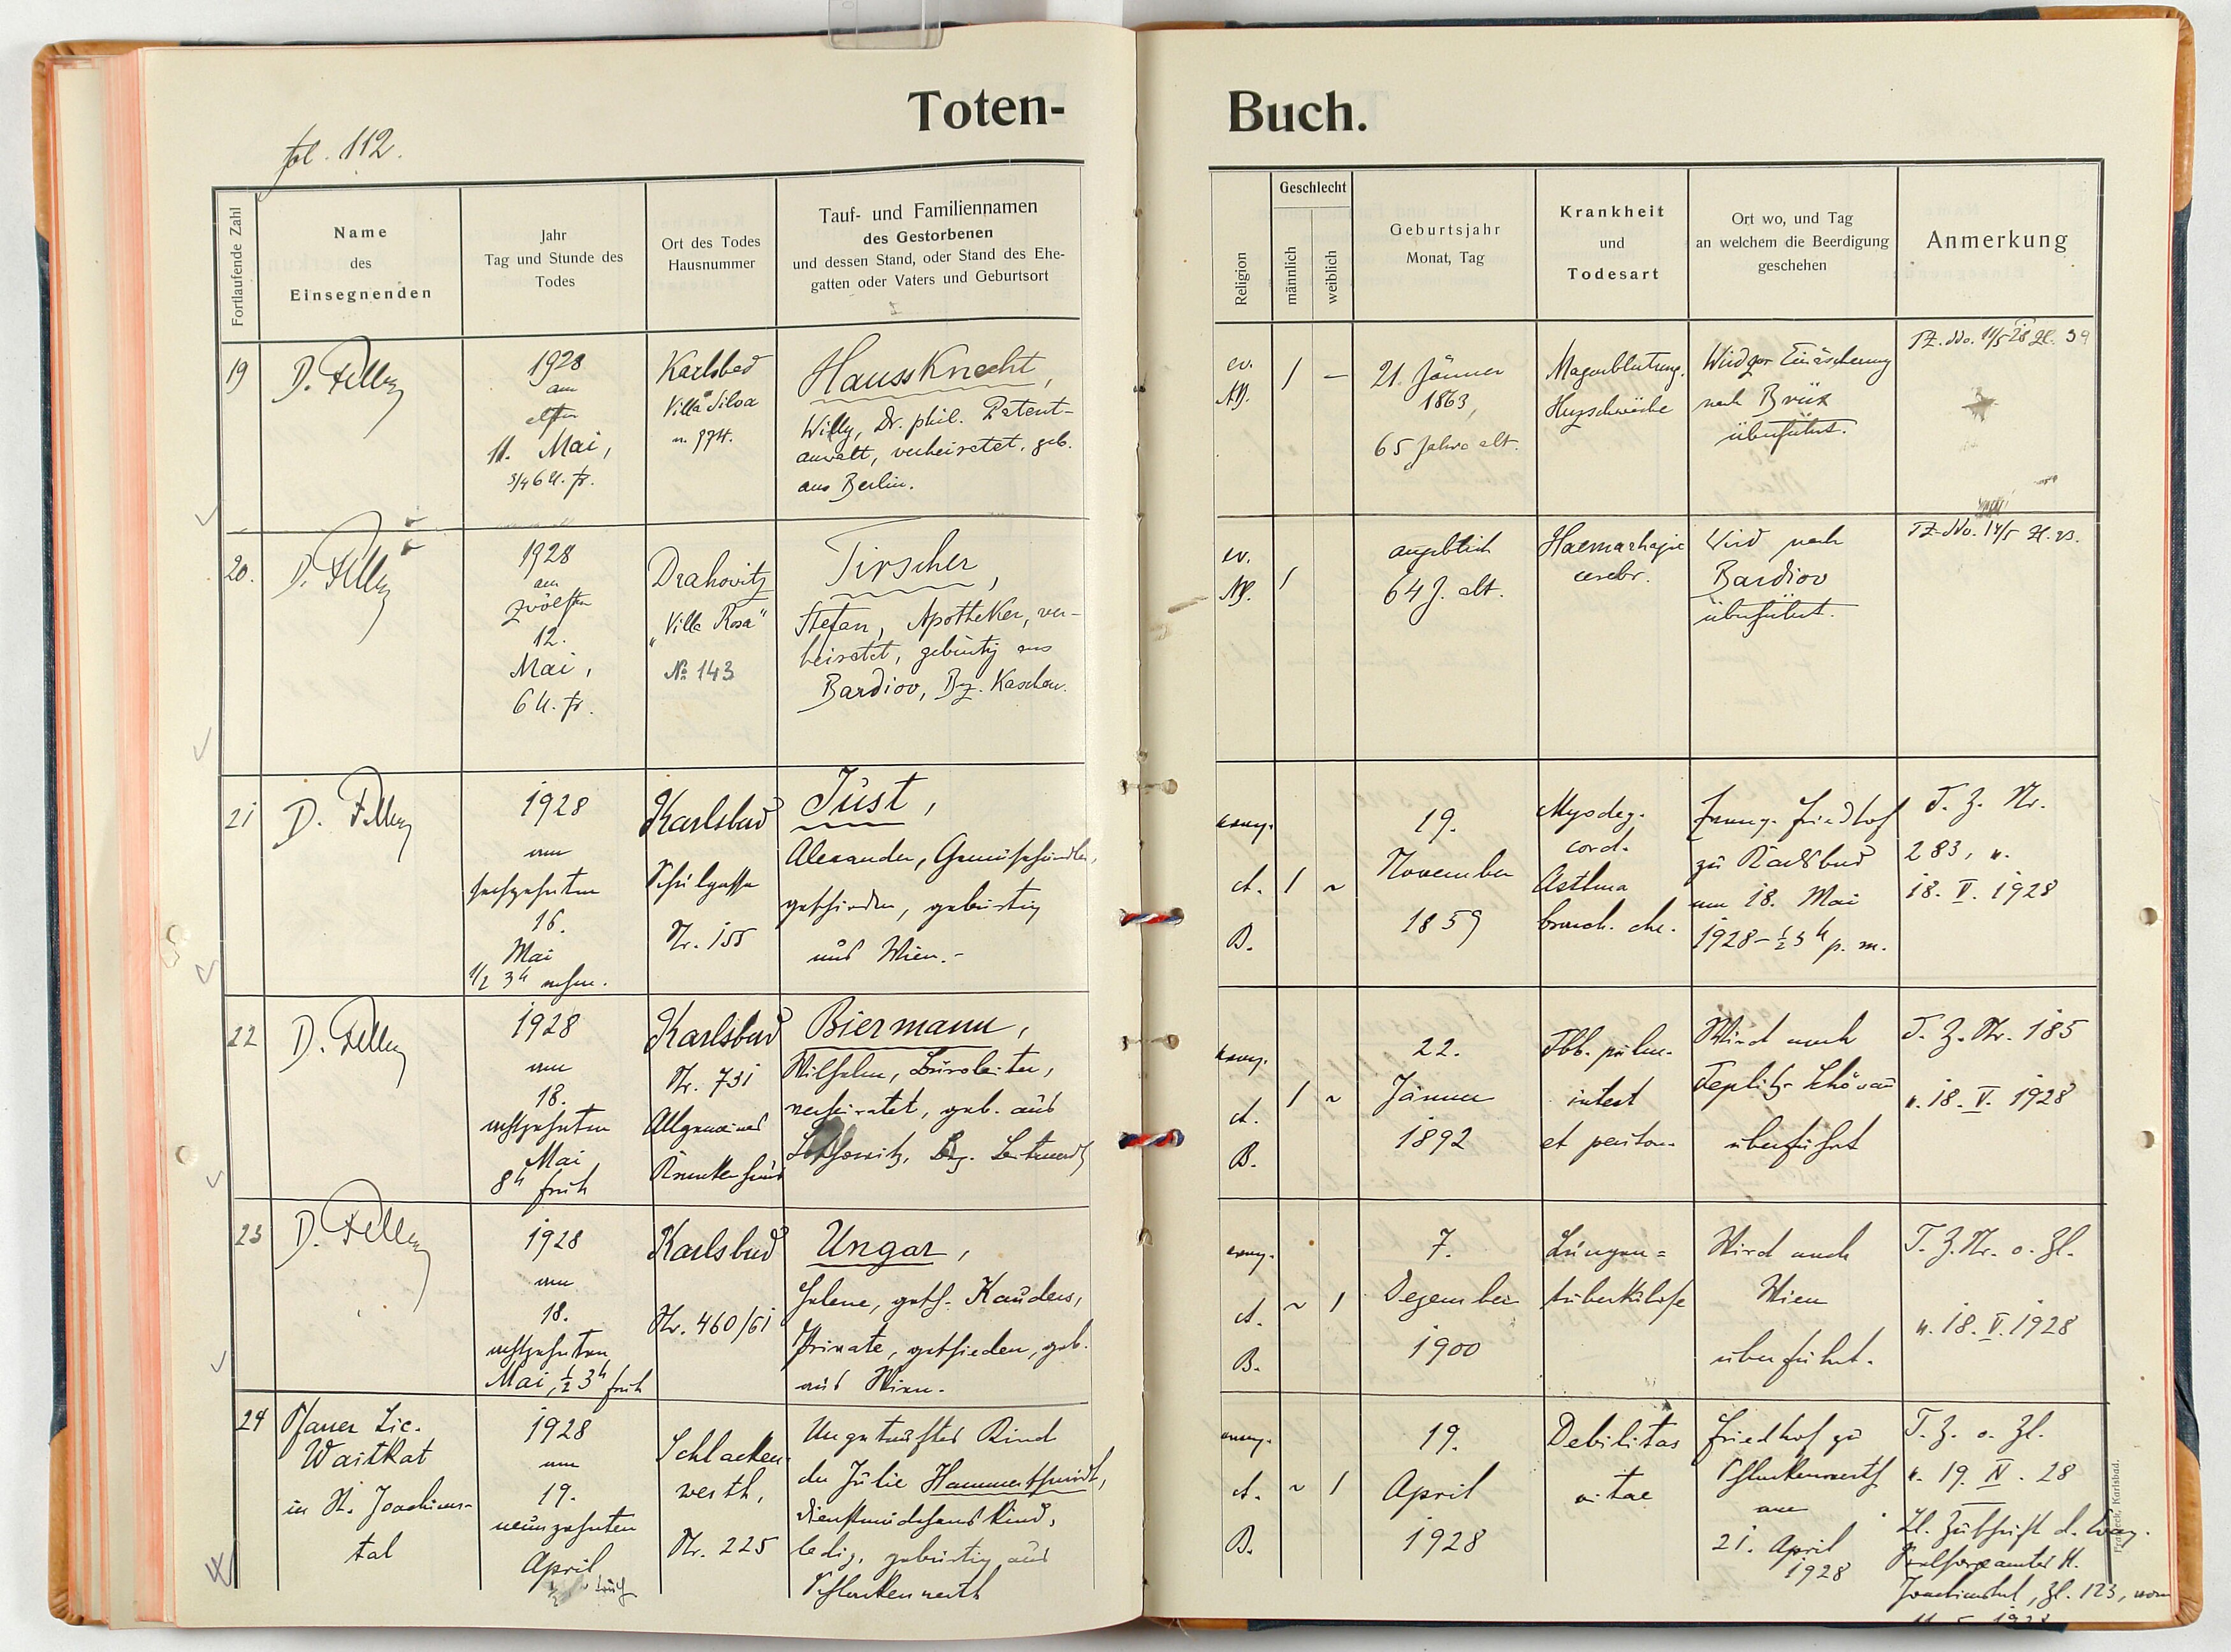 Toten-
Buch.
fol. 112.
Fortlaufende Zahl
Name
des
Einsegnenden
Jahr
Tag und Stunde des
Todes
Ort des Todes
Hausnummer
Tauf- und Familiennamen
des Gestorbenen
und dessen Stand, oder Stand des Ehe-
gatten oder Vaters und Geburtsort
Religion
Geschlecht
männlich
weiblich
Geburtsjahr
Monat, Tag
Krankheit
und
Todesart
Ort wo, und Tag
an welchem die Beerdigung
geschehen
Anmerkung
19
1928
am
elften
11. Mai,
3/4 6 U. fr.
Karlsbad
Villa Silva
n. 974.
Haussknecht,
Willy, Dr. phil. Patent-
anwalt, verheiratet, geb.
aus Berlin.
ev.
AB.
21. Jänner
1863,
65 Jahre alt.
Magenblutung.
Herzschwäche
Wird zur Einäscherung
nach Brüx
überführt.
TZ. No. 11/5 28 Zl. 39
20.
1928
am
zwölften
12.
Mai,
6 U. fr.
Drahovitz
„Villa Rosa"
№ 143
Tirscher,
Stefan, Apotheker, ver-
heiratet, gebürtig aus
Bardiov, Bz. Kaschau.
ev.
AB.
angeblich
64 J. alt.
Haemorhagie
cerebr.
Wird nach
Bardiov
überführt.
TZ. No. 14/5
21
1928
am
sechzehnten
16.
Mai
1/2 3h nachm.
Karlsbad
Schulgasse
Nr. 155
Just,
Alexander, Gemüsehändler,
geschieden, gebürtig
aus Wien.-
evang.
A.
B.
19.
November
1859
Myodeg.
cord.
Asthma
bronch. chr.
Evang. Friedhof
zu Karlsbad
am 18. Mai
1928 - ½ 3h p. m.
T. Z. Nr.
283, v.
18. V. 1928
22
1928
am
18.
achtzehnten
Mai
8h früh
Karlsbad
Nr. 731
Allgemeines
Krankenhaus
Biermann,
Wilhelm, Büroleiter,
verheiratet, geb. aus
Bez. Leitmeritz
evang.
A.
B.
22.
Jänner
1892
Tbb. pulm.
intest
et periton.
Wird nach
Teplitz-Schönau
überführt
T. Z. Nr. 185
v. 18. V. 1928
23
1928
am
18.
achtzehnten
Mai, ½ 3h früh
Karlsbad
Nr. 460/61
Ungar,
Helene, gesch. Kauders,
Private, geschieden, geb.
aus Wien.
evang.
A.
B.
7.
Dezember
1900
Lungen=
tuberkulose
Wird nach
Wien
überführt.
T. Z. Nr. o. Zl.
v. 18. V. 1928
24
Pfarrer Lic.
Waitkat
in St. Joachims-
tal
1928
am
19.
neunzehnten
April
Schlacken-
werth,
Nr. 225
Ungetauftes Kind
der Julie Hammerschmidt,
Dienstmädchens Kind,
ledig, gebürtig aus
Schlackenwerth
evang.
A.
B.
19.
April
1928
Debilitas
vitae
Friedhof zu
Schlackenwerth
am
21. April
1928
T. Z. o. Zl.
v. 19. IV. 28
Lt. Zuschrift d. Evang.
Pfarramtes St.
Joachimstal, Zl. 123, vom